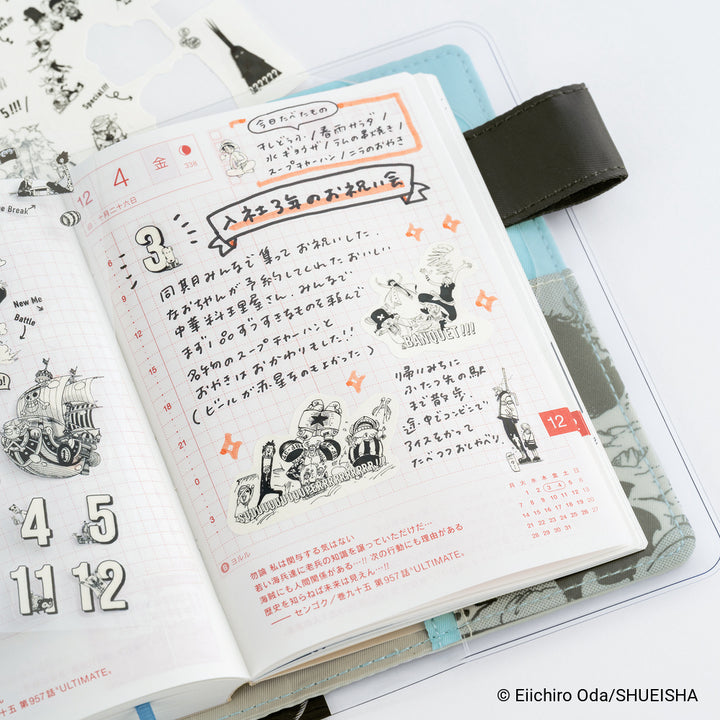 5!!! /
Special!!
e Break
New Me
Battle
4 5
11 12
十五 第957話"ULTIMATE"。
12 4 金 338
十月二十六日
今日たべたもの
むしどうふ / 春雨サラダ /
水ギョウザ / ラムの串焼き /
スープチャーハン / ニラのおやき
入社3年のお祝い会
3
同期みんなで集ってお祝いした。
なおちゃんが予約してくれたおいしい
中華料理屋さん。みんなで
まず1品ずつすきなものを頼んで
名物のスープチャーハンと
おやきはおかわりもした!!
(ビールが赤星なのもよかった)
BANQUET!!!
帰りみちに
ふたつ先の駅
まで散歩。
途中でコンビニで
アイスをかって
たべつつおしゃべり。
6
9
12
15
18
21
0
3
12
月 火 水 木 金 土 日
1 2 3 4 5 6
7 8 9 10 11 12 13
14 15 16 17 18 19 20
21 22 23 24 25 26 27
28 29 30 31
ヨルル
勿論 私は関与する気はない
若い海兵達に老兵の知識を譲っていただけだ…
海賊にも人間関係がある…!! 次の行動にも理由がある
歴史を知らねば未来は見えん…!!
── センゴク／巻九十五 第957話"ULTIMATE"。
© Eiichiro Oda/SHUEISHA